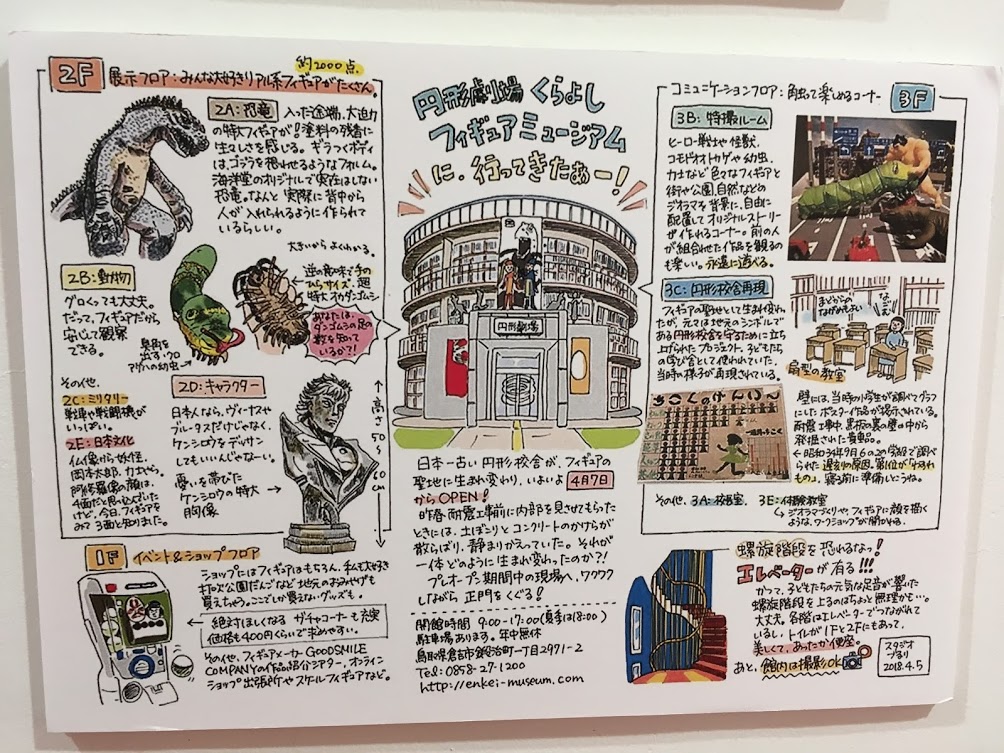 2F
展示フロア:みんな大好きリアル系フィギュアがたくさん。
約2000点。
2A:恐竜
入った途端、大迫力
の特大フィギュアが!塗料の残香に
生々しさを感じる。ギラつくボディ
は、ゴジラを想わせるようなフォルム。
海洋堂のオリジナルで実在はしない
恐竜。なんと実際に背中から
人が入れられるように作られて
いるらしい。
2B:動物
グロくっても大丈夫。
だって、フィギュアだから
安心して観察
できる。
臭角を
出すクロ
アゲハの幼虫→
大きいからよくわかる
逆の意味で手の
ひらサイズ、超
特大オカダンゴムシ
あなたは、
ダンゴムシの足の
数を知って
いるか?!
その他、
2C:ミリタリー
戦車や戦闘機が
いっぱい。
2E:日本文化
仏像から妖怪、
岡本太郎、力士やら。
阿修羅像の顔は、
4面だと思い込んでいた
けど、今日、フィギュアを
みて3面と知りました。
2D:キャラクター
日本人なら、ヴィーナスや
ブルータスだけじゃなく、
ケンシロウをデッサン
してもいいんじゃなーい。
憂いを帯びた
ケンシロウの特大→
胸像
高さ50〜60cm
1F
イベント&ショップフロア
ショップにはフィギュアはもちろん、私も大好き
打吹公園だんごなど地元のおみやげも
買えちゃう。ここでしか買えないグッズも。
絶対ほしくなるガチャコーナーも充実
価格も400円くらいで求めやすい。
その他、フィギュアメーカーGOODSMILE
COMPANYの作品紹介シアター、オンライン
ショップ出張所やスケールフィギュアなど。
円形劇場くらよし
フィギュアミュージアム
に、行ってきたぁー!
円形劇場
日本一古い円形校舎が、フィギュアの
聖地に生まれ変わり、いよいよ4月7日
からOPEN!
昨春、耐震工事前に内部を見させてもらった
ときには、土ぼこりとコンクリートのかけらが
散らばり、静まりかえっていた。それが
一体どのように生まれ変わったのか?!
プレオープン期間中の現場へ、ワクワク
しながら正門をくぐる!
開館時間 9:00-17:00(夏季は18:00)
駐車場あります。年中無休
鳥取県倉吉市鍛冶町一丁目2971-2
Tel:0858-27-1200
http://enkei-museum.com
コミュニケーションフロア:触って楽しめるコーナー
3F
3B:特撮ルーム
ヒーロー戦士や怪獣、
コモドオオトカゲや幼虫、
力士など色々なフィギュアと
街や公園、自然などの
ジオラマを背景に、自由に
配置してオリジナルストーリー
が作れるコーナー。前の人
が組合わせた作品を観るの
も楽しい。永遠に遊べる。
3C:円形校舎再現
フィギュアの聖地として生まれ変わっ
たが、元々は地元のシンボルで
ある円形校舎を守るために立ち
上げられたプロジェクト。子どもたち
の学び舎として使われていた、
当時の様子が再現されている。
まどからの
ながめもいい
なごむ〜
扇型の教室
壁には、当時の小学生が調べてグラフ
にしたポスター作品が掲示されている。
耐震工事中、黒板の裏の壁の中から
発掘された貴重品。
←昭和34年9月6の2の学級で調べら
れた遅刻の原因。第1位が「わすれ
もの」。寝る前に準備しとこうね。
ちこくのげんいん
その他、3A:校宝室、3E:体験教室
ジオラマづくりや、フィギュアに顔を描く
ような、ワークショップが開かれる。
螺旋階段を恐れるなっ!
エレベーターが有る!!!
かつて、子どもたちの元気な足音が響いた
螺旋階段を上るのはちょと無理かも…。
大丈夫。各階はエレベーターでつながれて
いるし、トイレが1Fと2Fにもあって、
美しくて、あったか便座。
あと、館内は撮影OK
スタジオ
ぷるり
2018.4.5